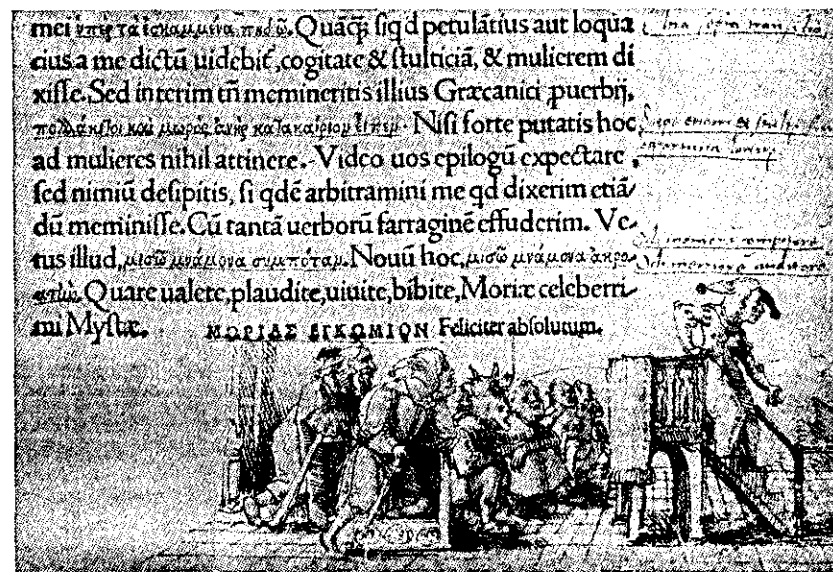 mei ὑπὲρ τὰ ἐσκαμμένα πηδῶ. Quãq̃ siqd petulãtius aut loqua
cius a me dictũ uidebit̃, cogitate & stulticiã, & mulierem di
xisse. Sed interim tñ memineritis illius Græcanici ꝓuerbij,
πολλάκι τοι καὶ μωρὸς ἀνὴρ κατακαίριον εἶπεν. Nisi forte putatis hoc
ad mulieres nihil attinere. Video uos epilogũ expectare,
sed nimiũ desipitis, si qdẽ arbitramini me qd dixerim etiã
dũ meminisse. Cũ tantã uerborũ farraginẽ effuderim. Ve
tus illud, μισῶ μνάμονα συμπόταν. Nouũ hoc, μισῶ μνάμονα ἀκρο
ατὼ. Quare ualete, plaudite, uiuite, bibite, Moriæ celeberri
mi Mystæ. ΜΩΡΙΑΣ ΕΓΚΩΜΙΟΝ Feliciter absolutum.